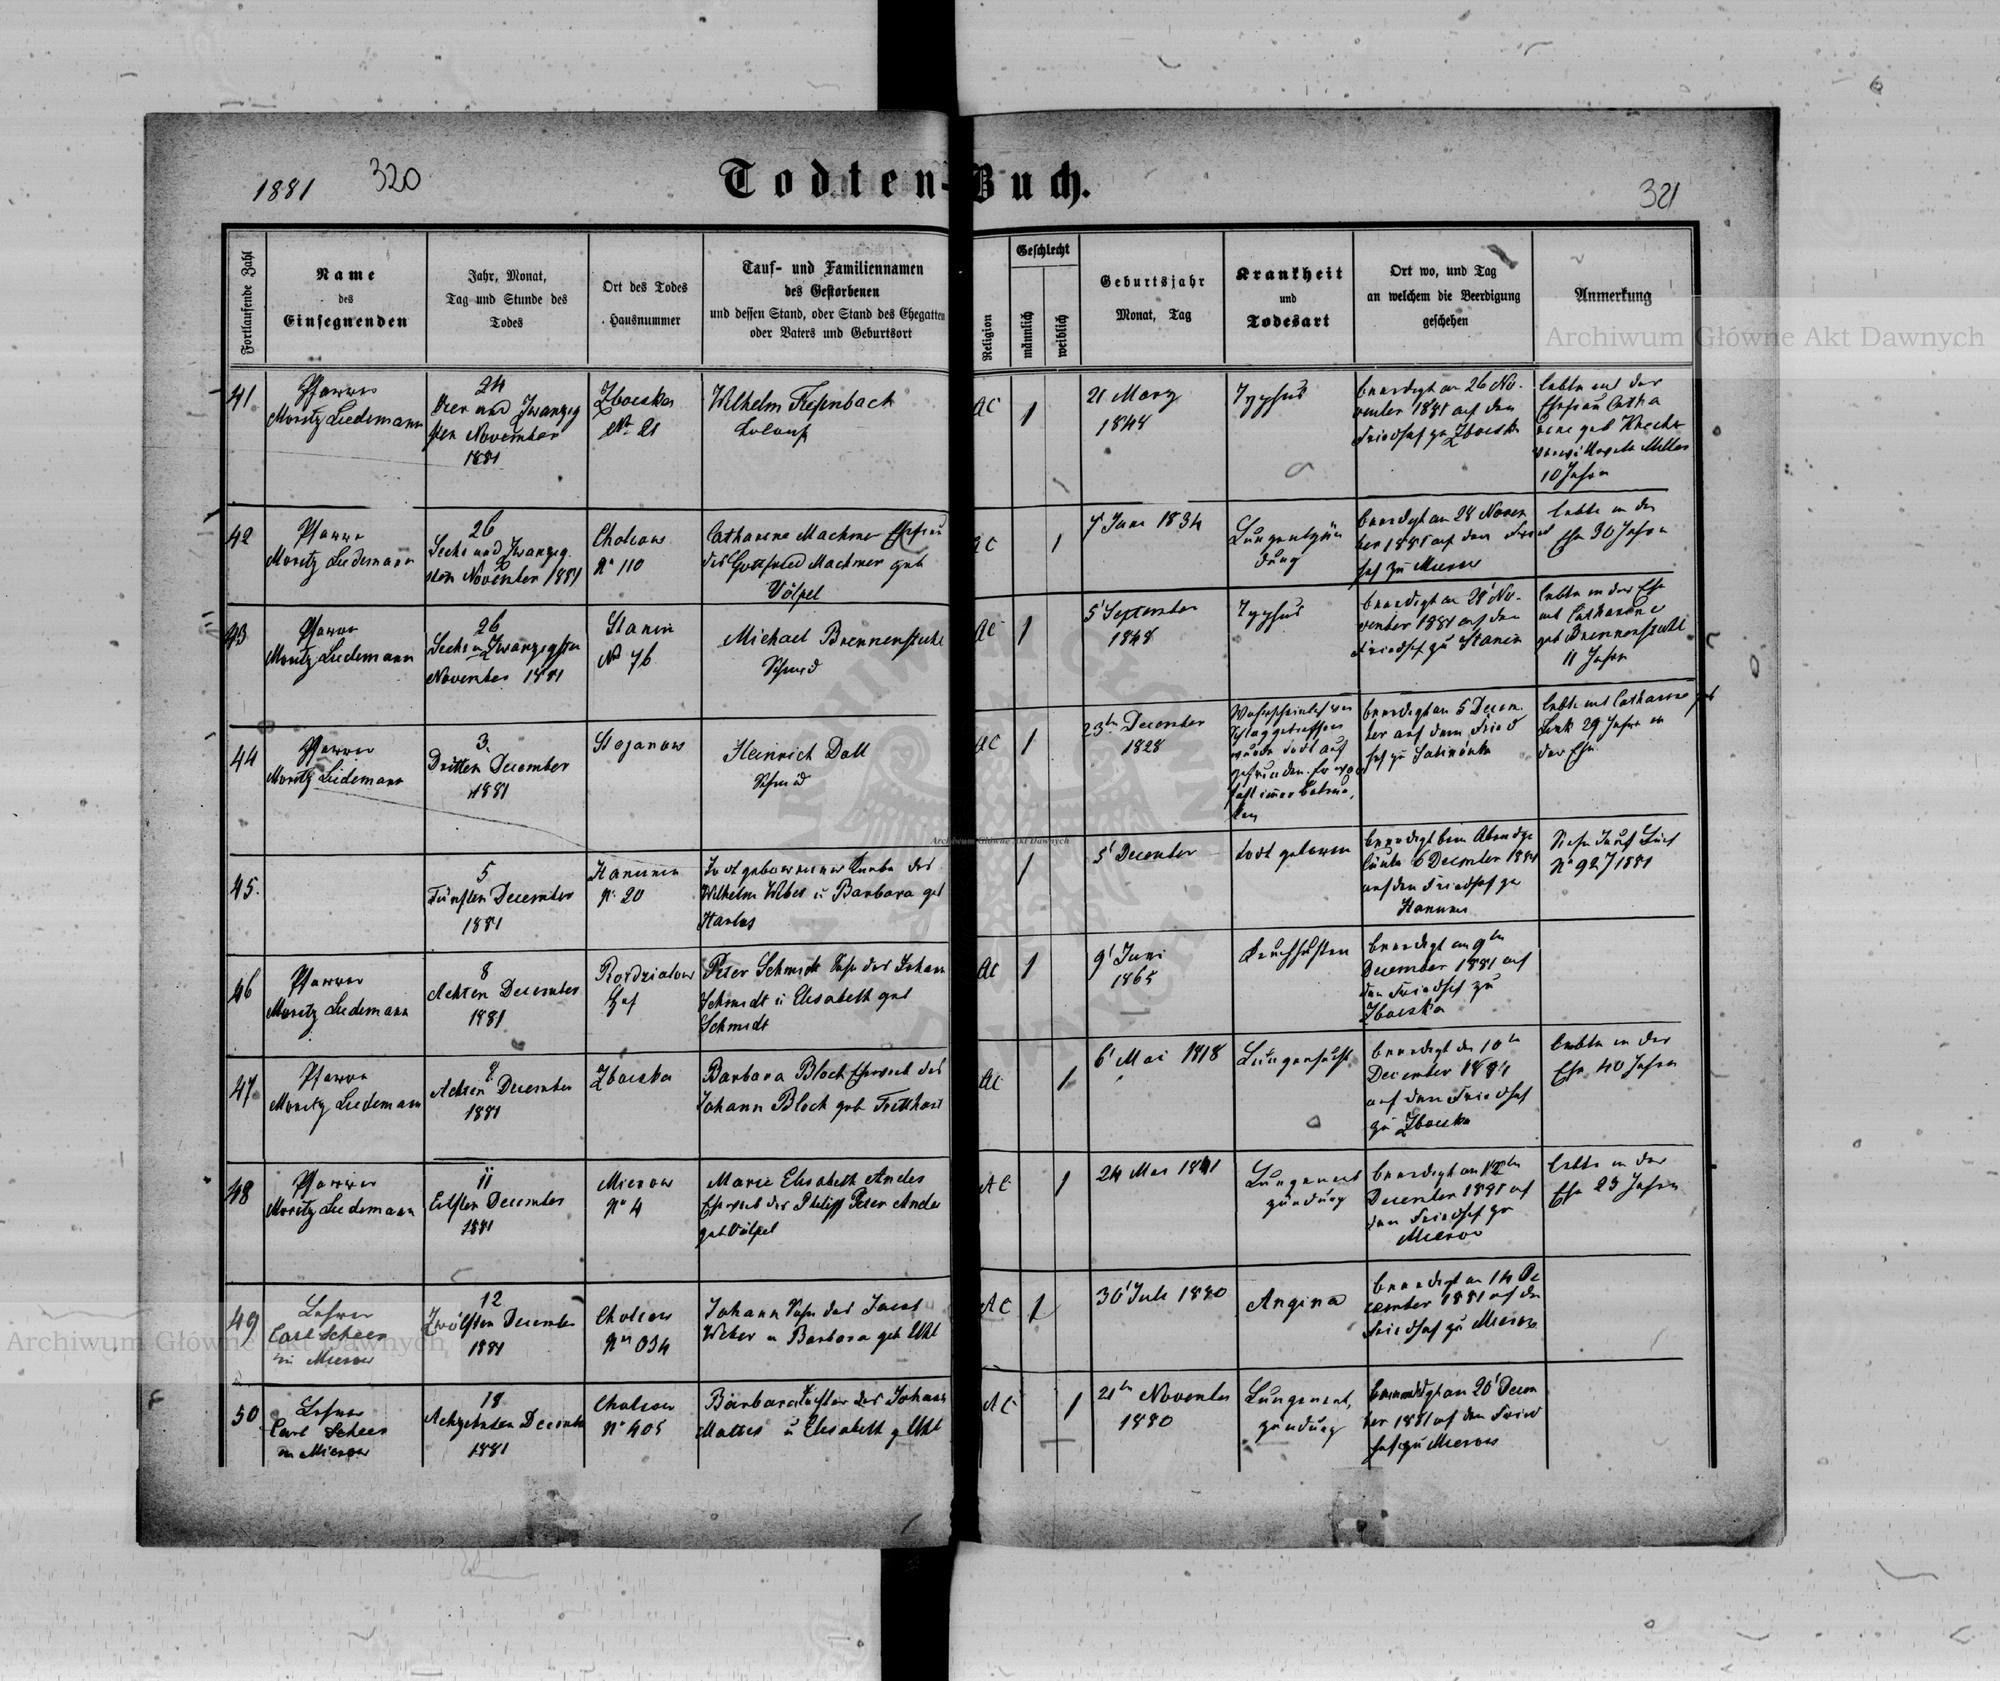 1881
320
Todten-Buch.
321
Fortlaufende Zahl
Name
des
Einsegnenden
Jahr, Monat,
Tag und Stunde des
Todes
Ort des Todes
Hausnummer
Tauf- und Familiennamen
des Gestorbenen
und dessen Stand, oder Stand des Ehegatten
oder Vaters und Geburtsort
Religion
Geschlecht
männlich
weiblich
Geburtsjahr
Monat, Tag
Krankheit
und
Todesart
Ort wo, und Tag
an welchem die Beerdigung
geschehen
Anmerkung
Archiwum Główne Akt Dawnych
41
Pfarrer
Moritz Liedemann
24
Vier und Zwanzig
sten November
1881
Zboiska
No 21
Wilhelm
AC
1
21 März
1844
Typhus
beerdigt am 26 No-
vember 1881 auf dem
Friedhof zu Zboiska
lebte mit der
Ehefrau Catha
rine geb
10 Jahre
42
Pfarrer
Moritz Liedemann
26
Sechs und Zwanzig
sten November 1881
Cholojow
No 110
Catharina Machmer Ehefrau
des Gottfried Machmer geb
Völpel
AC
1
7 Juni 1834
Lungenentzün
dung
beerdigt am 28 Novem
ber 1881 auf dem Fried
hof zu Mierow
lebte in der
Ehe 30 Jahre
43
Pfarrer
Moritz Liedemann
26
Sechs u Zwanzigsten
November 1881
Stanin
No 76
Michael Brennenstuhl
Schmid
AC
1
5 September
1848
Typhus
beerdigt am 28 No-
vember 1881 auf dem
Friedhof zu Stanin
lebte in der Ehe
mit Catharina
geb Brennenstuhl
11 Jahre
44
Pfarrer
Moritz Liedemann
3
Dritten December
1881
Stojanow
Heinrich Doll
Schmid
AC
1
23ten December
1828
Wahrscheinlich vom
Schlag getroffen
wurde todt auf
gefunden. Er war
fast immer betrun,
ken
beerdigt am 5 Decem-
ber auf dem Fried
hof zu
lebte mit Catharina geb
29 Jahre in
der Ehe
45.
5
Fünften December
1881
Hanunin
No 20
Todt geborener Knabe des
Wilhelm Weber u Barbara geb
Harlos
1
5 December
todt geboren
beerdigt beim Abendge
läute 6 December 1881
auf dem Friedhof zu
Hanunin
Siehe Tauf Buch
No 92 J 1881
46
Pfarrer
Moritz Liedemann
8
Achten December
1881
Rozdzialow
Hof
Peter Schmidt Sohn des Johann
Schmidt u Elisabeth geb
Schmidt
AC
1
9 Juni
1865
beerdigt am 9ten
December 1881 auf
dem Friedhof zu
Zboiska
47
Pfarrer
Moritz Liedemann
8
Achten December
1881
Zboiska
Barbara Bloch Eheweib des
Johann Bloch geb
AC
1
6 Mai 1818
Lungensucht
beerdigt den 10ten
December 1881
auf dem Friedhof
zu Zboiska
lebte in der
Ehe 40 Jahre
48
Pfarrer
Moritz Liedemann
11
Eilften December
1881
Mierow
No 4
Marie Elisabeth Andes
Eheweib des Philipp Peter Andes
geb Völpel
AC
1
24 Mai 1841
Lungenent
zündung
beerdigt am 12ten
December 1881 auf
dem Friedhof zu
Mierow
lebte in der
Ehe 23 Jahre
49
Lehrer
Carl Scheer
in Mierow
12
Zwölften December
1881
Cholojow
No 034
Johann Sohn des Jacob
Weber u Barbara geb Uhl
AC
1
30 Juli 1880
Angina
beerdigt am 14 De
cember 1881 auf dem
Friedhof zu Mierow
50
Lehrer
Carl Scheer
in Mierow
18
Achzehnten December
1881
Cholojow
No 405
Barbara Tochter des Johann
Mattes u Elisabeth g Uhl
AC
1
21ten November
1880
Lungenent,
zündung
beerdigt am 20 Decem
ber 1881 auf dem Fried
hof zu Mierow
Archiwum Główne Akt Dawnych
Archiwum Główne Akt Dawnych